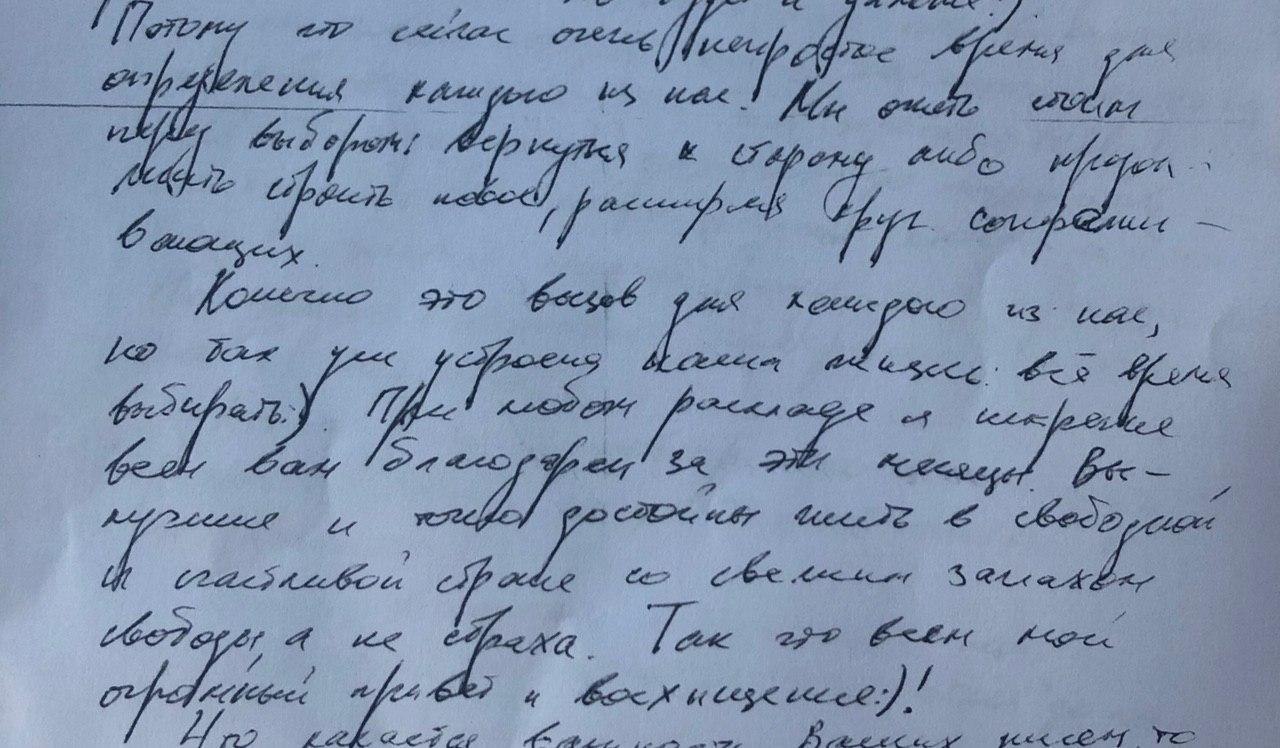 и дальше!).
Потому что сейчас очень непростое время для
определения каждого из нас. Мы опять стоим
перед выбором: вернуться в сторону либо продол-
жать строить новое, расширяя круг сопережи-
вающих.
Конечно это вызов для каждого из нас,
но так уж устроена наша жизнь: всё время
выбирать:). При любом раскладе я искренне
всем вам благодарен за эти месяцы. Вы –
лучшие и точно достойны жить в свободной
и счастливой стране со свежим запахом
свободы, а не страха. Так что всем мой
огромный привет и восхищение:)!
Что касается Ваших писем, то